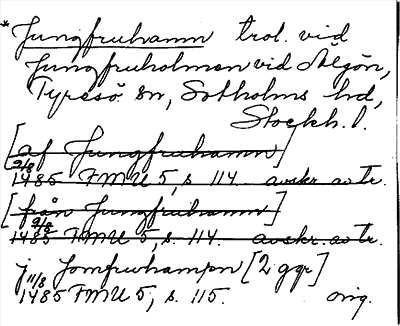 *Jungfruhamn trol. vid
Jungfruholmen vid Älgön,
Tyresö sn, Sotholms hd,
Stockh. l.
[af Jungfruhamn]
2/8
1485 FMU 5, s. 114. avskr. av tr.
[från Jungfruhamn]
2/8
1485 FMU 5, s. 114. avskr. av tr.
j Jomfrwhampn [2 ggr]
11/8
1485 FMU 5, s. 115. orig.